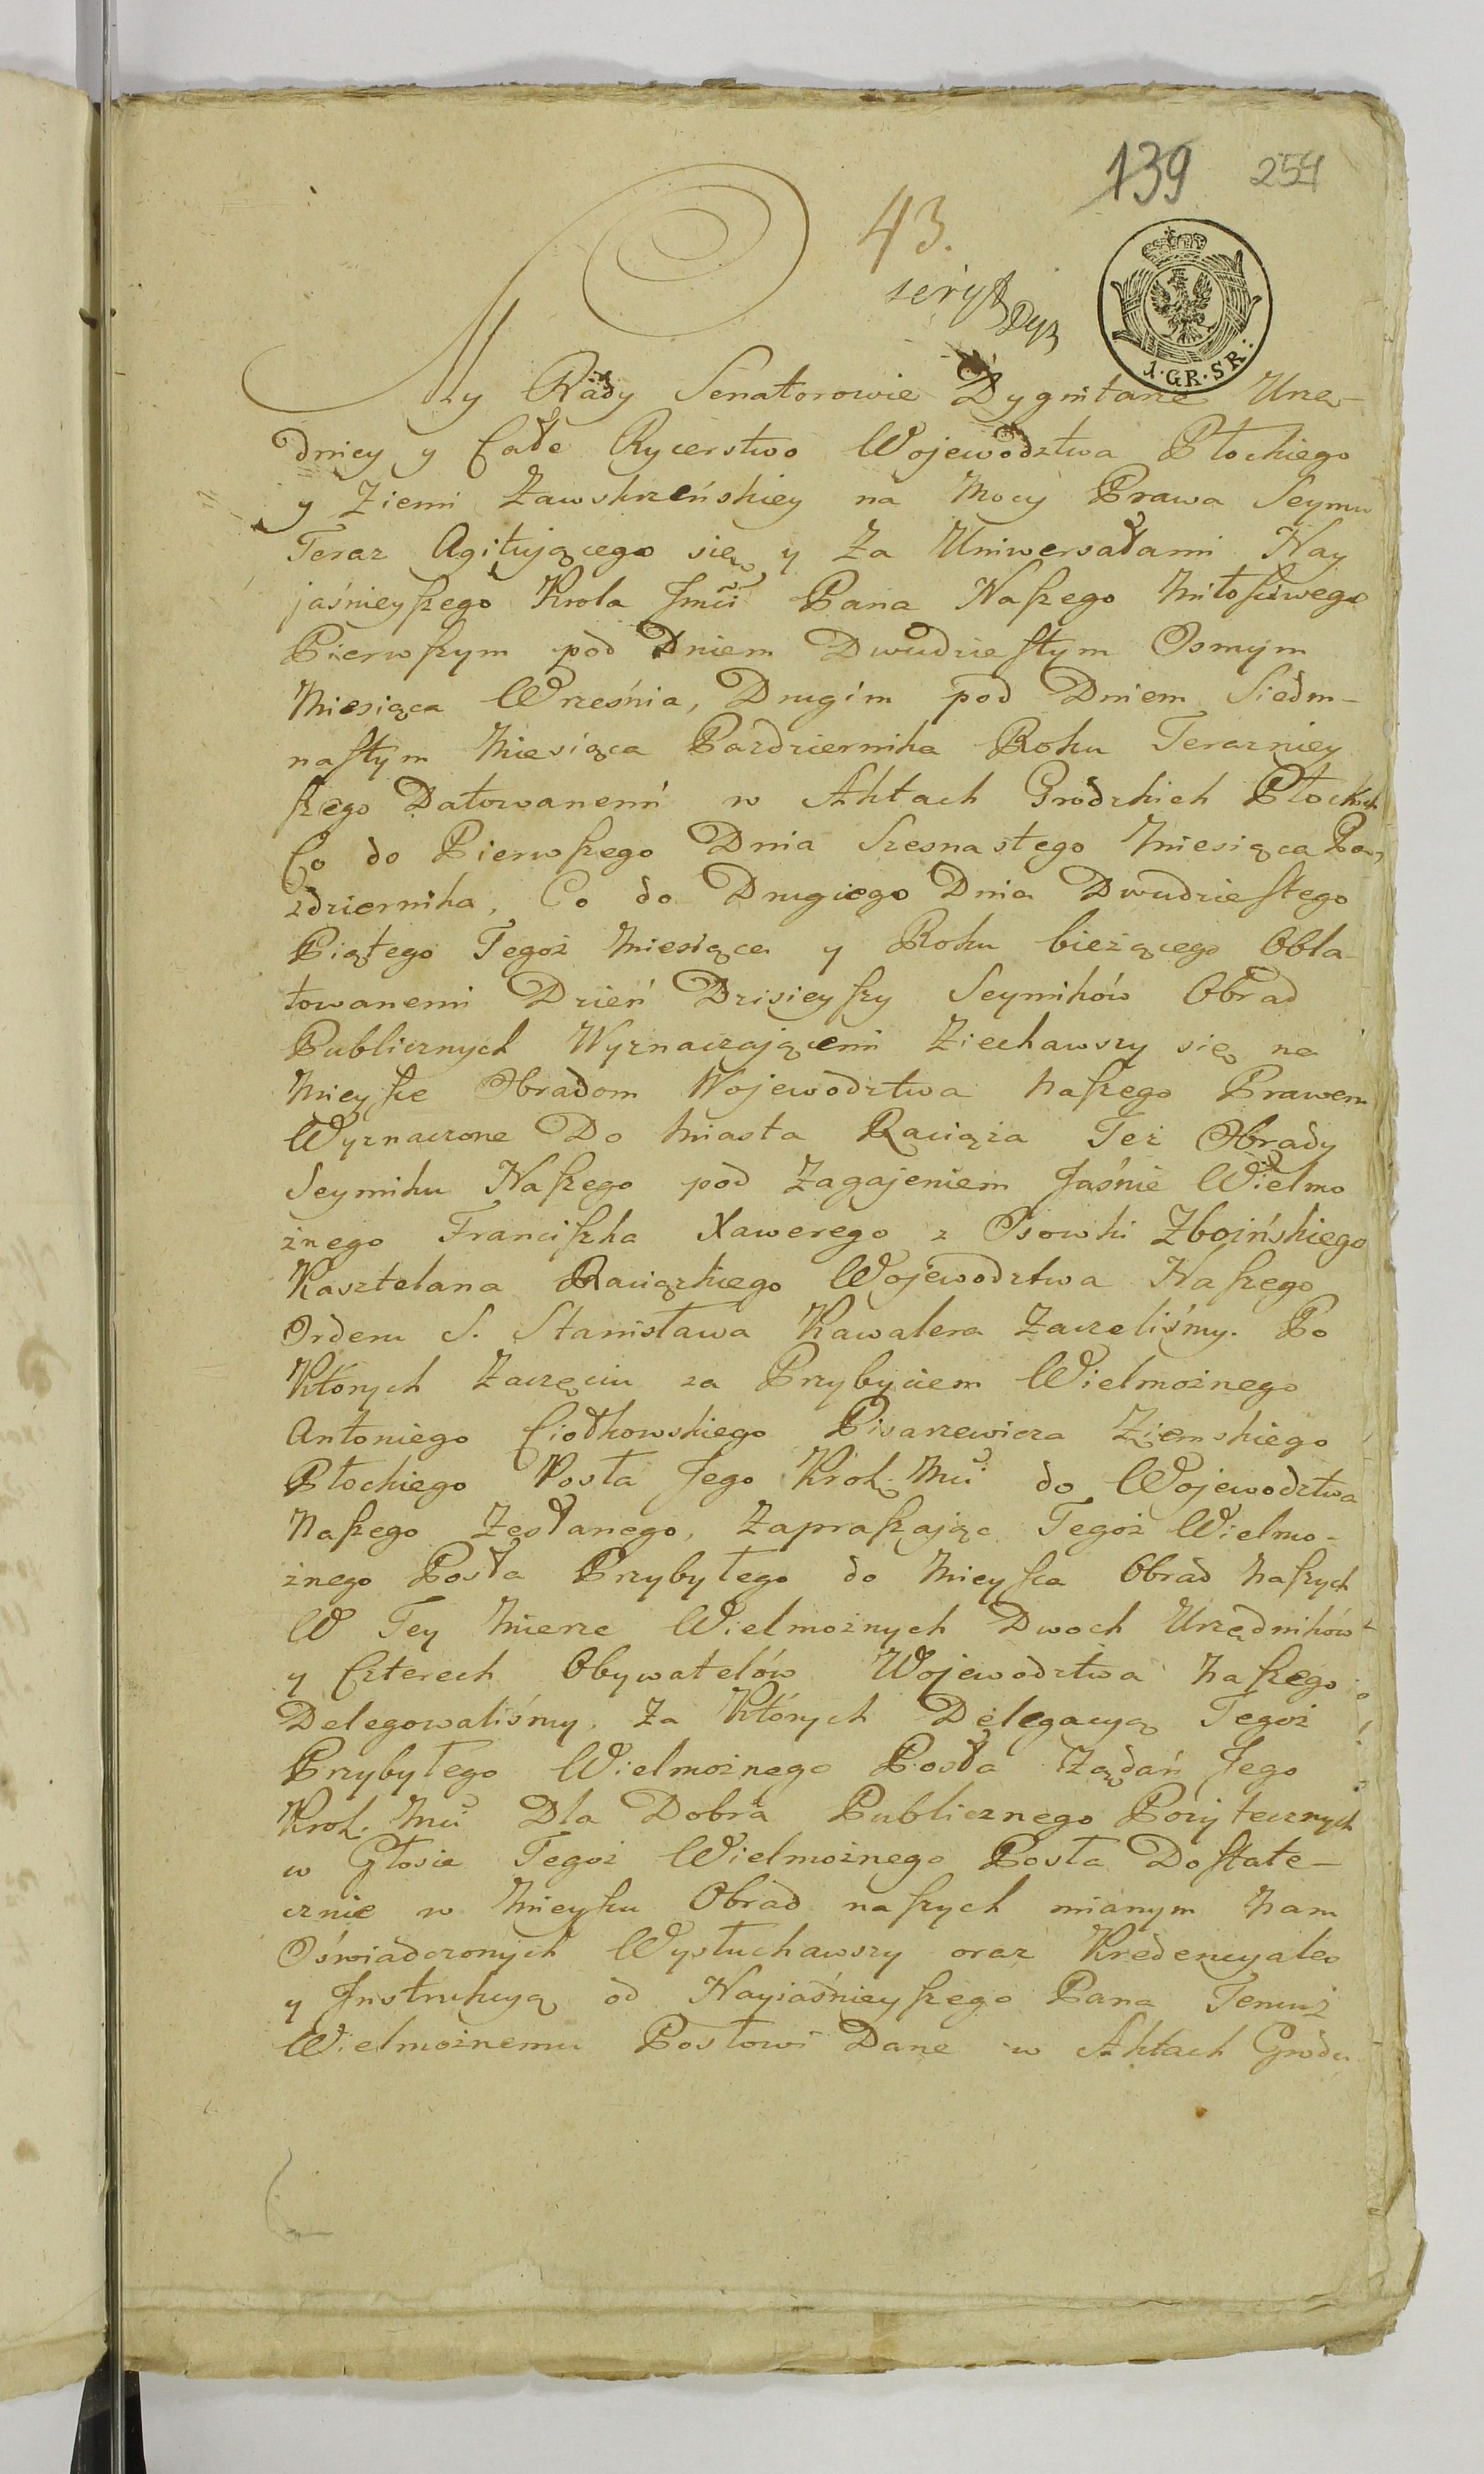 139 254
43.
1·GR·SR:
My Rady Senatorowie Dygnitarze Urzę-
dnicy y Całe Rycerstwo Wojewodztwa Płockiego
y Ziemi Zawskrzeńskiey na Mocy Prawa Seymu
Teraz Agitującego się y Za Uniwersałami Nay
jaśnieyszego Krola Jmci Pana Naszego Miłościwego
Pierwszym pod Dniem Dwudziestym Osmym
Miesiąca Września, Drugim pod Dniem Siedm-
nastym Miesiąca Pazdziernika Roku Terazniey
szego Datowanemi w Aktach Grodzkich Płockich
Co do Pierwszego Dnia Szesnastego Miesiąca Pa-
zdziernika, Co do Drugiego Dnia Dwudziestego
Piątego Tegoż Miesiąca y Roku bieżącego Obla-
towanemi Dzień Dzisieyszy Seymików Obrad
Publicznych Wyznaczającemi Ziechawszy się na
Mieysce Obradom Wojewodztwa Naszego Prawem
Wyznaczone Do Miasta Raciąża Też Obrady
Seymiku Naszego pod Zagajeniem Jaśnie Wielmo
żnego Franciszka Xawerego z Osowki Zboińskiego
Kasztelana Raciązkiego Wojewodztwa Naszego
Orderu S. Stanisława Kawalera Zaczeliśmy. Po
Których Zaczęciu za Przybyciem Wielmożnego
Antoniego Ciołkowskiego Pisarzewicza Ziemskiego
Płockiego Posła Jego Krol. Mci do Wojewodztwa
Naszego Zesłanego, Zapraszając Tegoż Wielmo-
żnego Posła Przybyłego do Mieysca Obrad Naszych
W Tey Mierze Wielmożnych Dwoch Urzędników
y Czterech Obywatelów Wojewodztwa Naszego
Delegowaliśmy, Za Których Delegacyą Tegoż
Przybyłego Wielmożnego Posła Żądań Jego
Krol. Mci Dla Dobra Publicznego Pożytecznych
w Głosie Tegoż Wielmożnego Posła Dostate-
cznie w Mieyscu Obrad naszych mianym Nam
Oświadczonych Wysłuchawszy oraz Kredencyales
y Instrukcyą od Nayiaśnieyszego Pana Temuż
Wielmożnemu Posłowi Dane w Aktach Grodu